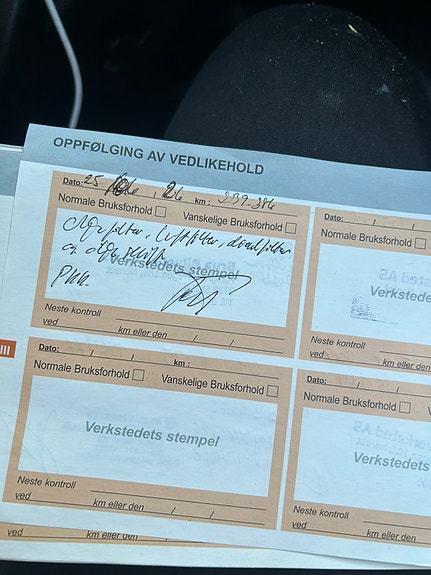 OPPFØLGING AV VEDLIKEHOLD
Dato: 25 / , 26 km : 299.386
Normale Bruksforhold Vanskelige Bruksforhold
oljefilter, luftfilter, dieselfilter
og oljeskift
Verkstedets stempel
PKK.
Neste kontroll
ved km eller den / /
Verkstede
Neste kontroll
ved km eller den
III
Dato: / / km :
Normale Bruksforhold Vanskelige Bruksforhold
Verkstedets stempel
Neste kontroll
ved km eller den / /
Dato: / /
Normale Bruksforhold
Verkstedets
Neste kontroll
ved km eller den
ved km eller den